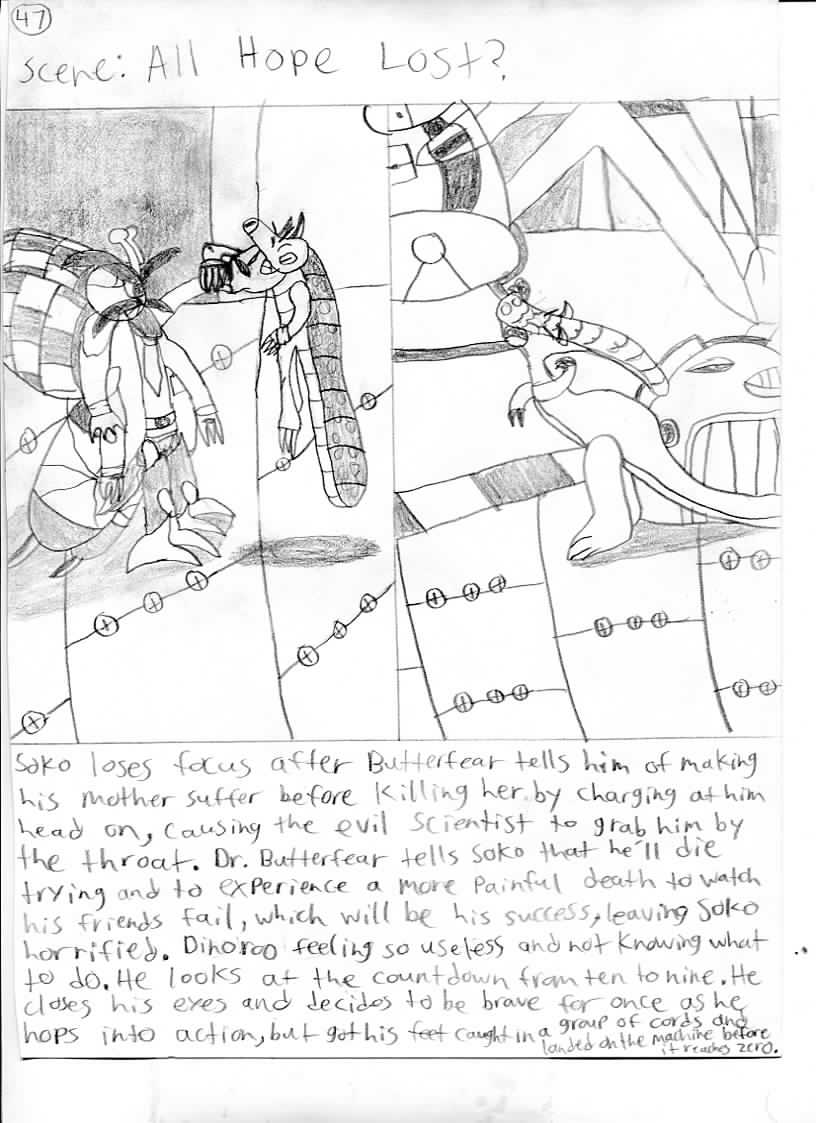 47
Scene: All Hope Lost?
Soko loses focus after Butterfear tells him of making
his mother suffer before killing her by charging at him
head on, causing the evil scientist to grab him by
the throat. Dr. Butterfear tells Soko that he'll die
trying and to experience a more painful death to watch
his friends fail, which will be his success, leaving Soko
horrified. Dinoroo feeling so useless and not knowing what
to do. He looks at the countdown from ten to nine. He
closes his eyes and decides to be brave for once as he
hops into action, but got his feet caught in a group of cords and
landed on the machine before
it reaches zero.